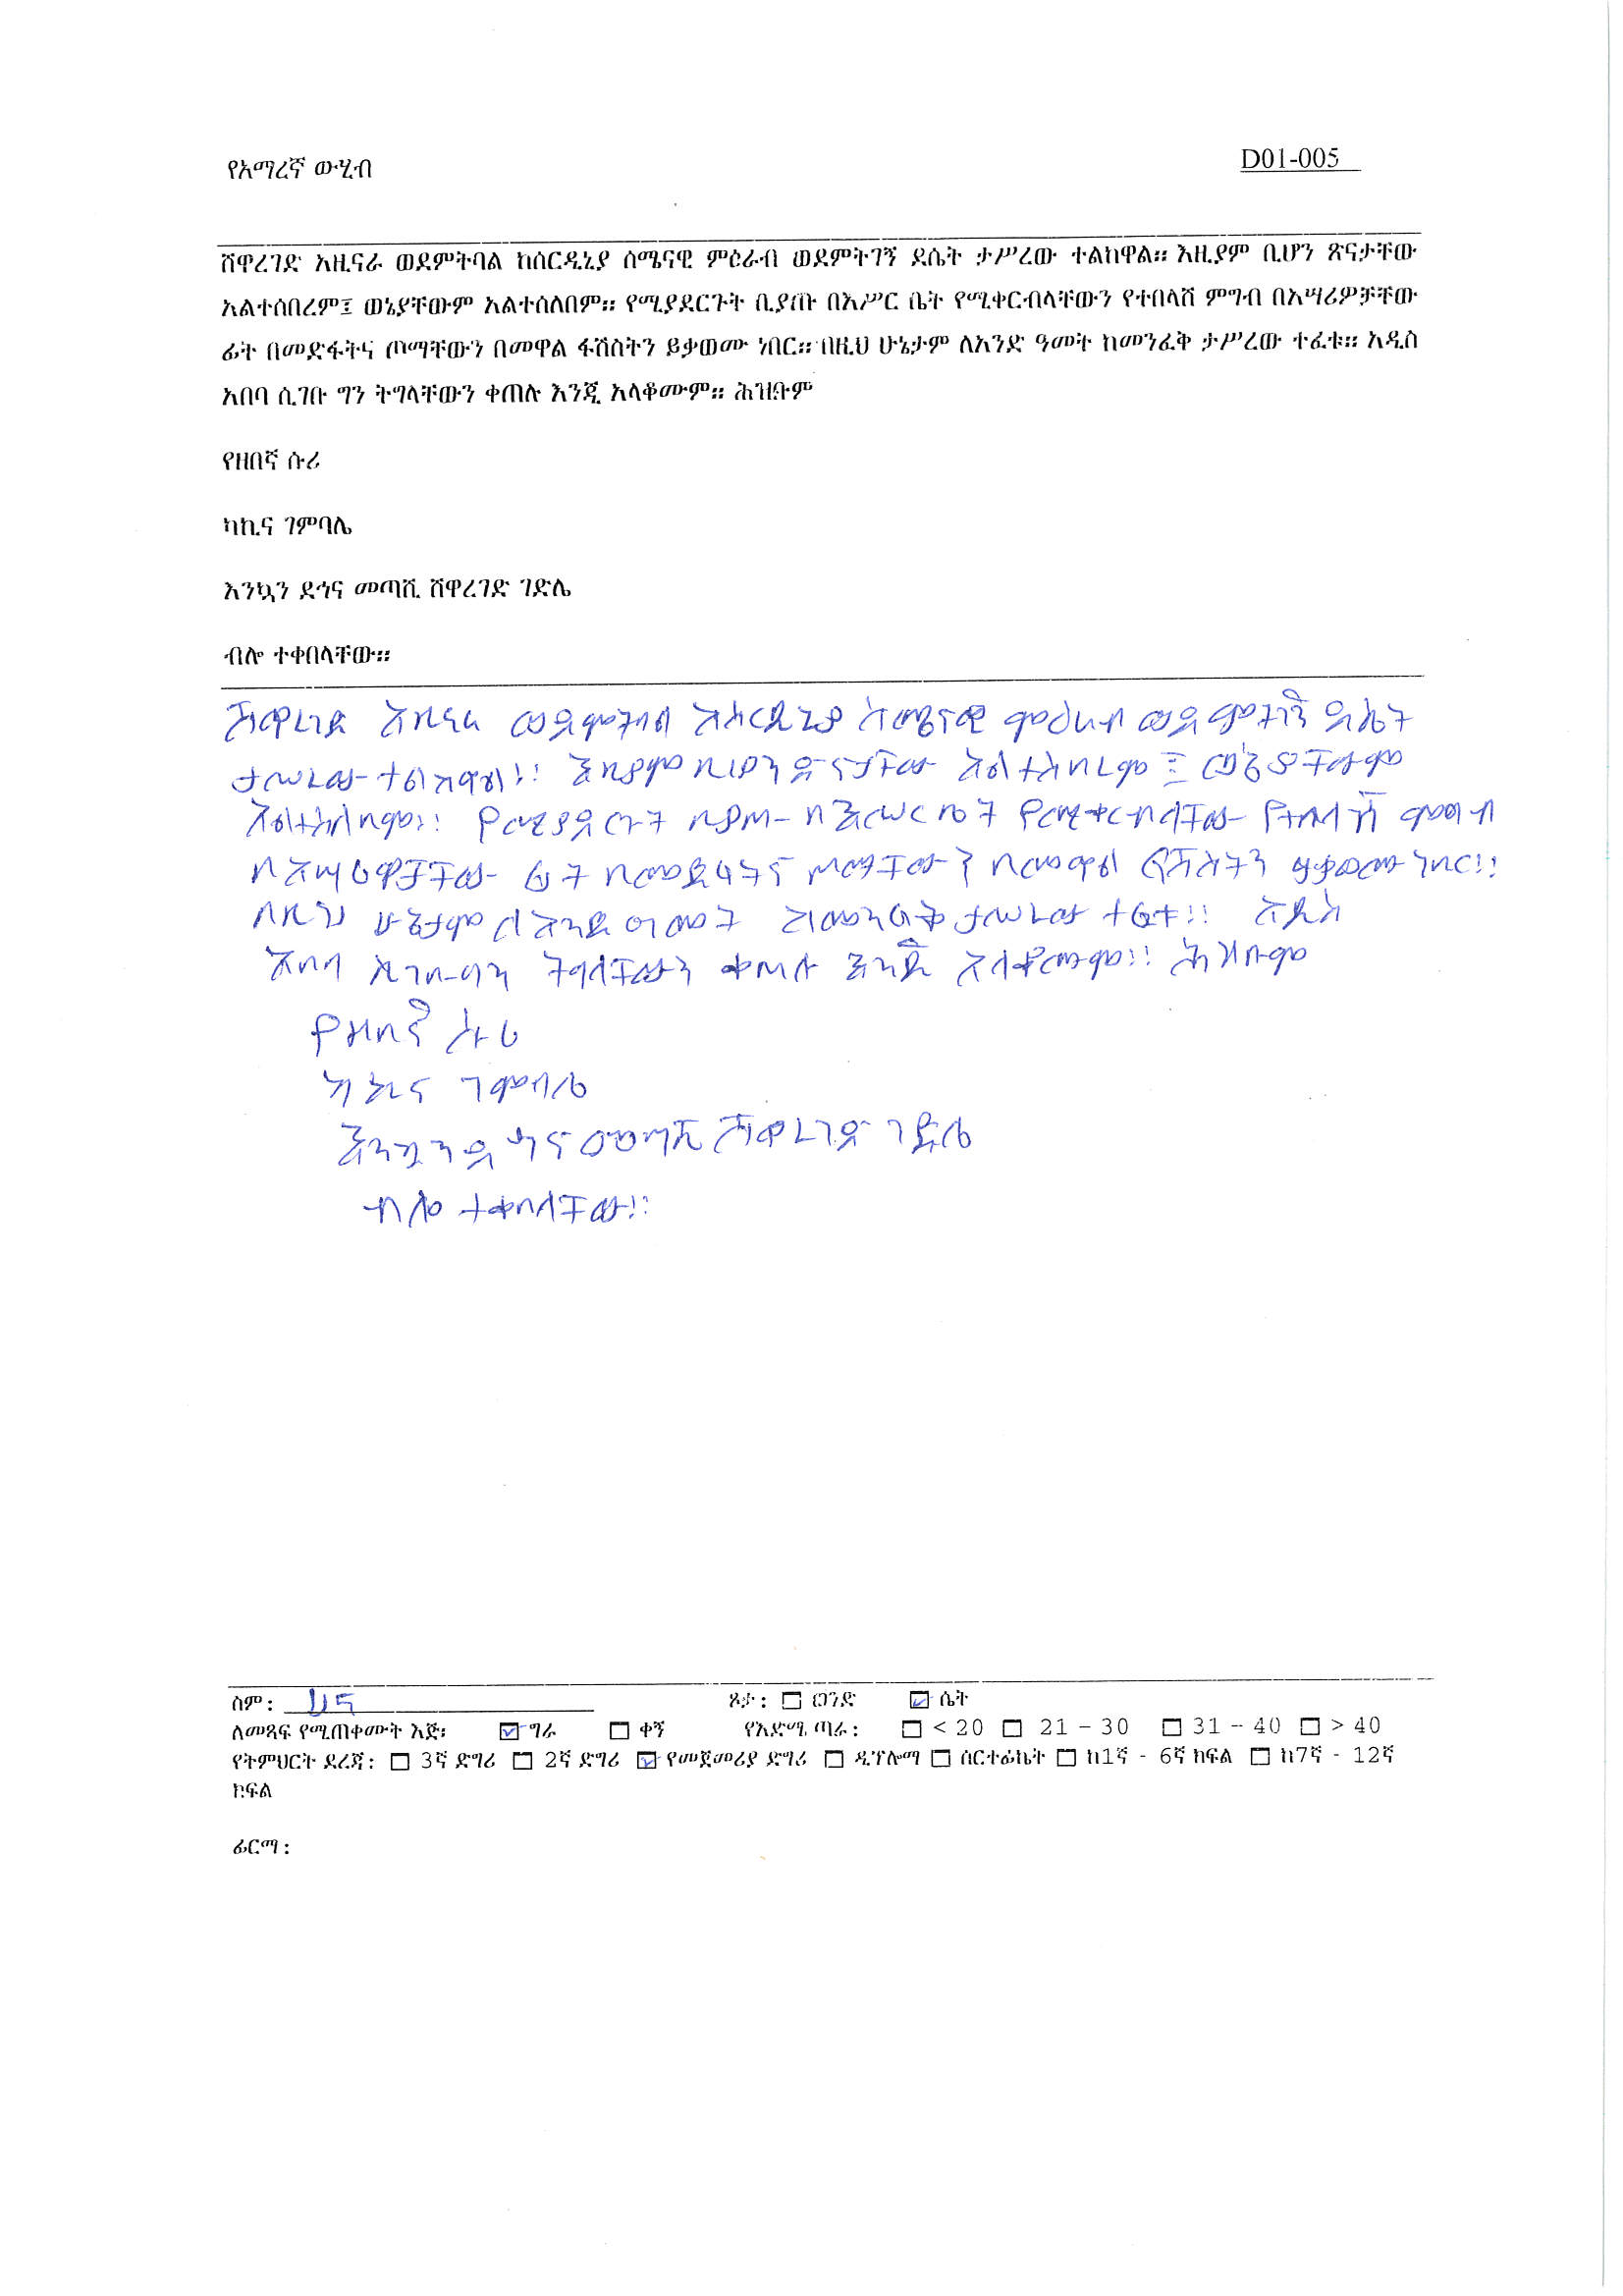 የአማረኛ ውሂብ
D01-005
ሸዋረገድ አዚናራ ወደምትባል ከሰርዲኒያ ሰሜናዊ ምዕራብ ወደምትገኝ ደሴት ታሥረው ተልከዋል። እዚያም ቢሆን ጽናታቸው
አልተሰበረም፤ ወኔያቸውም አልተሰለበም። የሚያደርጉት ቢያጡ በእሥር ቤት የሚቀርብላቸውን የተበላሸ ምግብ በአሣሪዎቻቸው
ፊት በመድፋትና ጦማቸውን በመዋል ፋሽስትን ይቃወሙ ነበር። በዚህ ሁኔታም ለአንድ ዓመት ከመንፈቅ ታሥረው ተፈቱ። አዲስ
አበባ ሲገቡ ግን ትግላቸውን ቀጠሉ እንጂ አላቆሙም። ሕዝቡም
የዘበኛ ሱሪ
ካኪና ገምባሌ
እንኳን ደኅና መጣሺ ሸዋረገድ ገድሌ
ብሎ ተቀበላቸው።
ሸዋረገድ አዚናራ ወደምትባል ከሰርዲኒያ ሰሜናዊ ምዕራብ ወደምትገኝ ደሴት
ታሥረው ተልከዋል። እዚያም ቢሆን ጽናታቸው አልተሰበረም፤ ወኔያቸውም
አልተሰለበም። የሚያደርጉት ቢያጡ በእሥር ቤት የሚቀርብላቸው የተበላሸ ምግብ
በአሣሪዎቻቸው ፊት በመድፋትና ጦማቸውን በመዋል ፋሽስትን ይቃወሙ ነበር።
በዚህ ሁኔታም ለአንድ ዓመት ከመንፈቅ ታሥረው ተፈቱ። አዲስ
አበባ ሲገቡ ግን ትግላቸውን ቀጠሉ እንጂ አላቆሙም። ሕዝቡም
የዘበኛ ሱሪ
ካኪና ገምባሌ
እንኳን ደኅና መጣሺ ሸዋረገድ ገድሌ
ብሎ ተቀበላቸው።
ስም: ፆታ: ወንድ ሴት
ለመጻፍ የሚጠቀሙት እጅ: ግራ ቀኝ የእድሜ ጣራ: < 20 21 – 30 31 – 40 > 40
የትምህርት ደረጃ: 3ኛ ድግሪ 2ኛ ድግሪ የመጀመሪያ ድግሪ ዲፕሎማ ሰርተፊኬት ከ1ኛ - 6ኛ ክፍል ከ7ኛ - 12ኛ
ክፍል
ፊርማ: